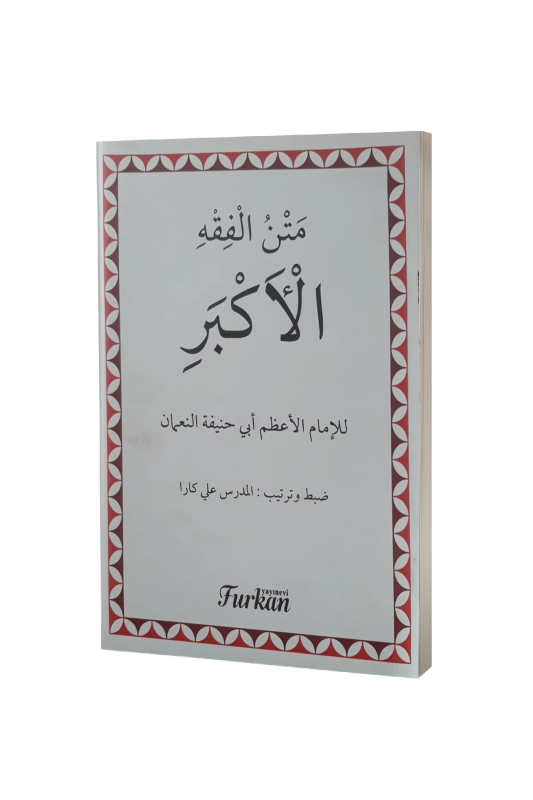 مَتْنُ الْفِقْهِ
الْأَكْبَرِ
للإمام الأعظم أبي حنيفة النعمان
ضبط وترتيب : المدرس علي كارا
yayınevi
Furkan